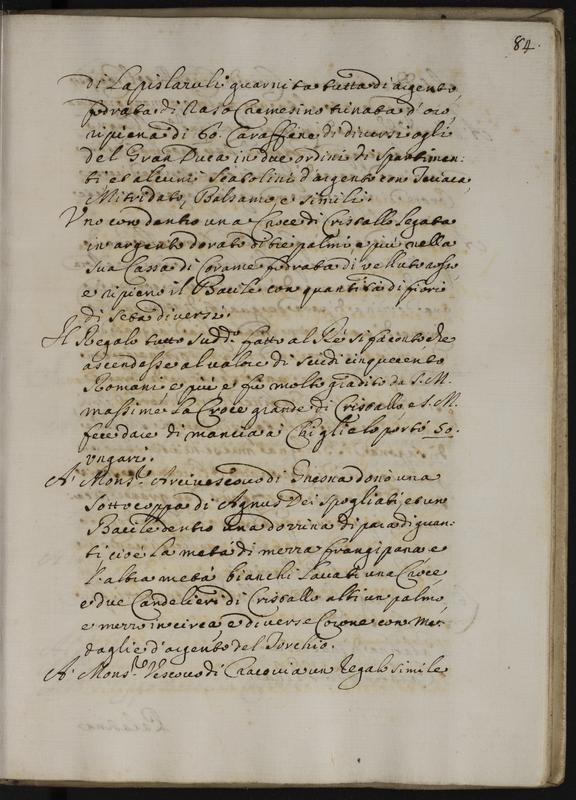 84.
di Lapislazuli guarnita tutta di argento,
fodrata di Raso Chemesino trinata d'oro,
ripiena di 60. Caraffine di diversi ogli
del Gran Duca in due ordini di spartimen:
ti et alcuni Scatolini d'argento con Teriaca,
Mitridato, Balsamo, e simili.
Uno con dentro una Croce di Cristallo legata
in argento dorato di tre palmi e più nella
sua Cassa di Corame fodrata di velluto rosso
e ripieno il Bacile con quantità di fiori
di seta diversi.
Il Regalo tutto sudd.o fatto al Rè si fa conto che
ascendesse al valore di scudi cinquecento
Romani e più e fù molto gradito da S. M.
massime la Croce grande di Cristallo, e S. M.
fece dare di mancia a' Chi glie lo portò 50.
ungari.
A' Mons.r Arcivescovo di Gnesna donò una
Sottocoppa di Agnus Dei spogliati, et un
Bacile dentro una dozzina di para di guan:
ti cioè la metà di mezza frangipana e
l'altra metà bianchi lavati una Croce
e due Candelieri di Cristallo alti un palmo
e mezzo in circa e diverse Corone con Me:
daglie d'argento del Torchio.
A' Mons.r Vescovo di Cracovia un regalo simile